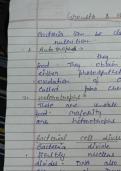 Growth &
Bacteria can be cl
nutrition
1. Autotrophs :
they
food. They obtain
either photosynthet
oxidation of
called
2. Heterotrophs :
These are unable
food. majority
are heterotrophs
Bacterial cell divi
Bacteria divide
Firstly nucleus
divides into